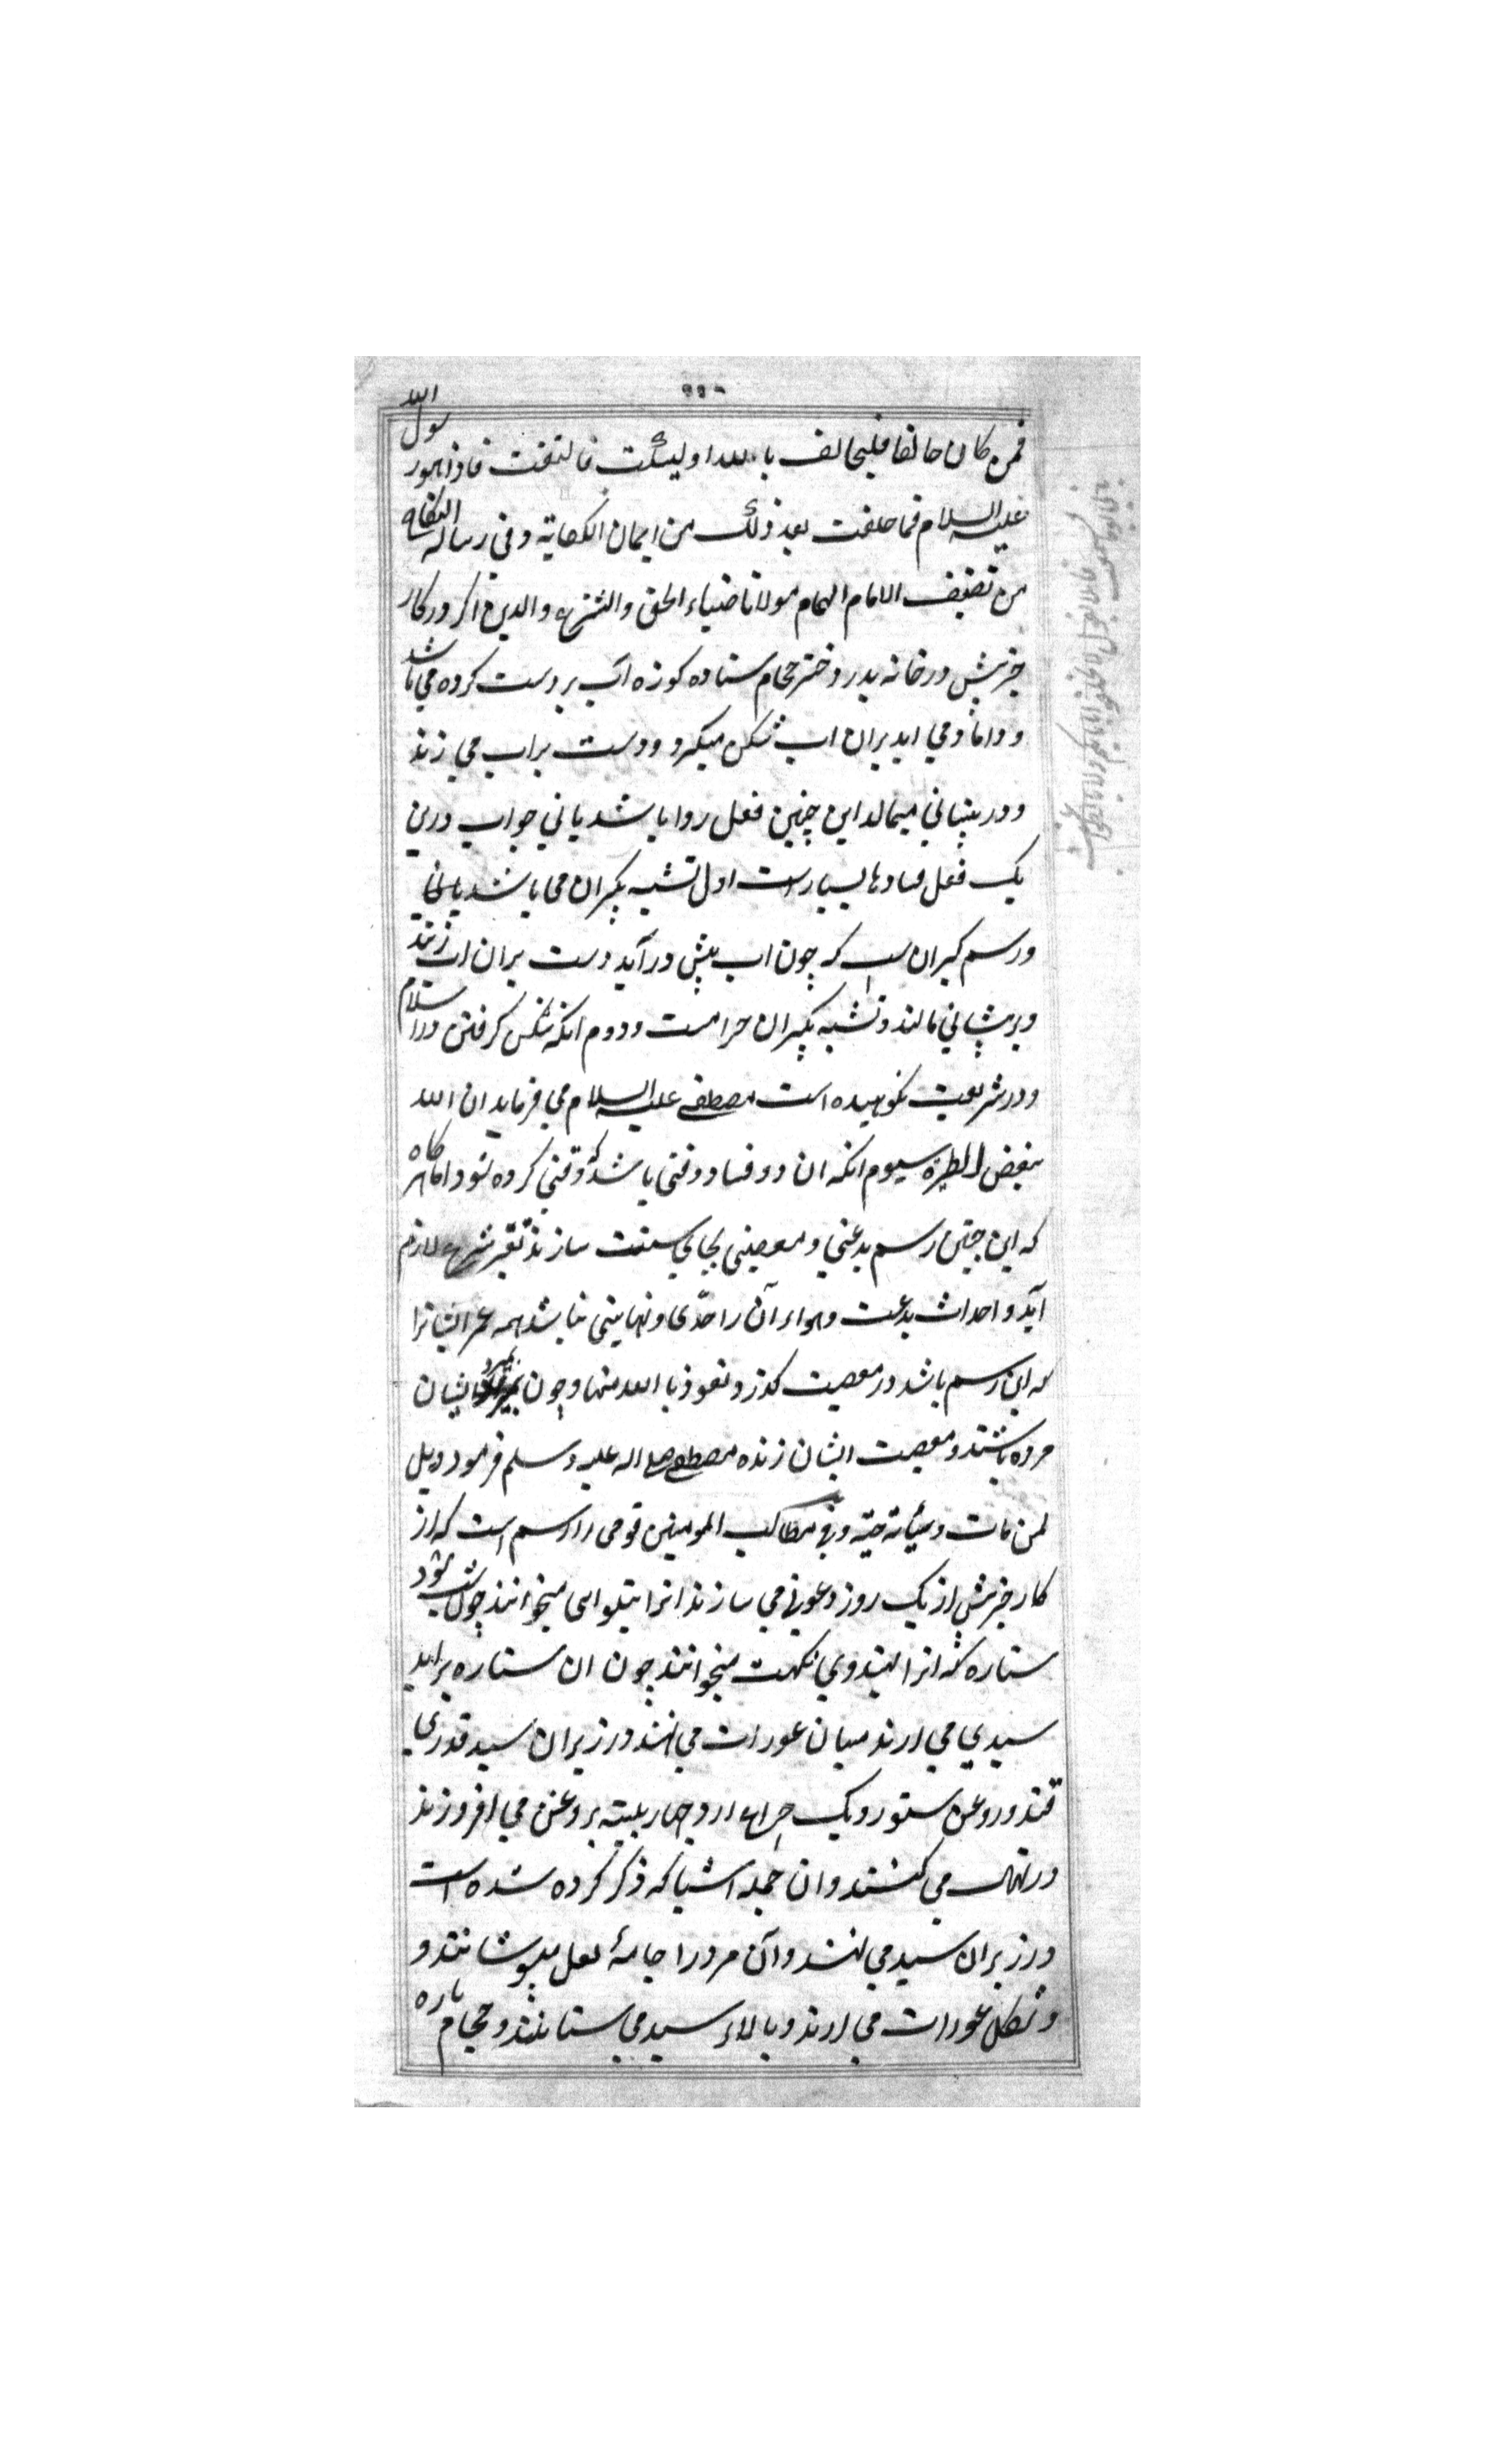 فمن كان حالفا فليحالف بالله او ليسكت فالتفت فاذا هو رسول الله
عليه السلام فما حلفت بعد ذلك من ايمان الكفاية وفي رسالة النكاح
من تصنيف الامام الهمام مولانا ضياء الحق والشرع والدين اكر در كار
خيرش در خانه پدر دختر حجام ستاده كوزه آب بر دست كرده مي باشد
و داماد مي ايد بران اب شكن ميكرد و دست براب مي زند
و در پيشاني ميمالد اين چنين فعل روا باشد ياني جواب درين
يك فعل فسادها بسيار است اول تشبه بكبران مي باشد
و رسم كبران است كه چون اب پيش در آيد دست بران اب زنند
و بر پيشاني مالند و تشبه بكبران حرامست و دوم انكه شكن كرفتن در اسلام
و در شريعت نكوهيده است مصطفى عليه السلام مي فرمايد ان الله
يبغض الطيرة سيوم انكه ان دو فساد وقتى باشد كه وقتي كرده شود اما هر كاه
كه اين چنين رسم بدعتي و معصيتى بجاي سنت سازند تغير شرع لازم
آيد و احداث بدعت و هواء آن را حدى و نهايتى نباشد همه عمر ايشانرا
كه اين رسم باشد در معصيت كذرد نعوذ بالله منها و چون بميرد ايشان
مرده باشند و معصيت ايشان زنده مصطفى صلى اله عليه وسلم فرمود ويل
لمن مات وسيأته حية وفي مطالب المومنين قومى را رسم است كه از
كار خير پيش از يك روز دعوتي مي سازند انرا ميخوانند چون شب شود
ستاره كه انرا هندوي ميخوانند چون ان ستاره برايد
سبدي مي ارند ميان عورات مي نهند در زير ان سبد قدري
قند و روغن ستور و يك چراغ ارد چهار بليته بروغن مي افروزند
و مي كنند و ان جمله اشيا كه ذكر كرده شده است
در زير ان سبد مي نهند و آن مرد را جامهٔ لعل ميپوشانند و
و عورات مي ارند و بالاء سبد مي ستانند و حجام پاره